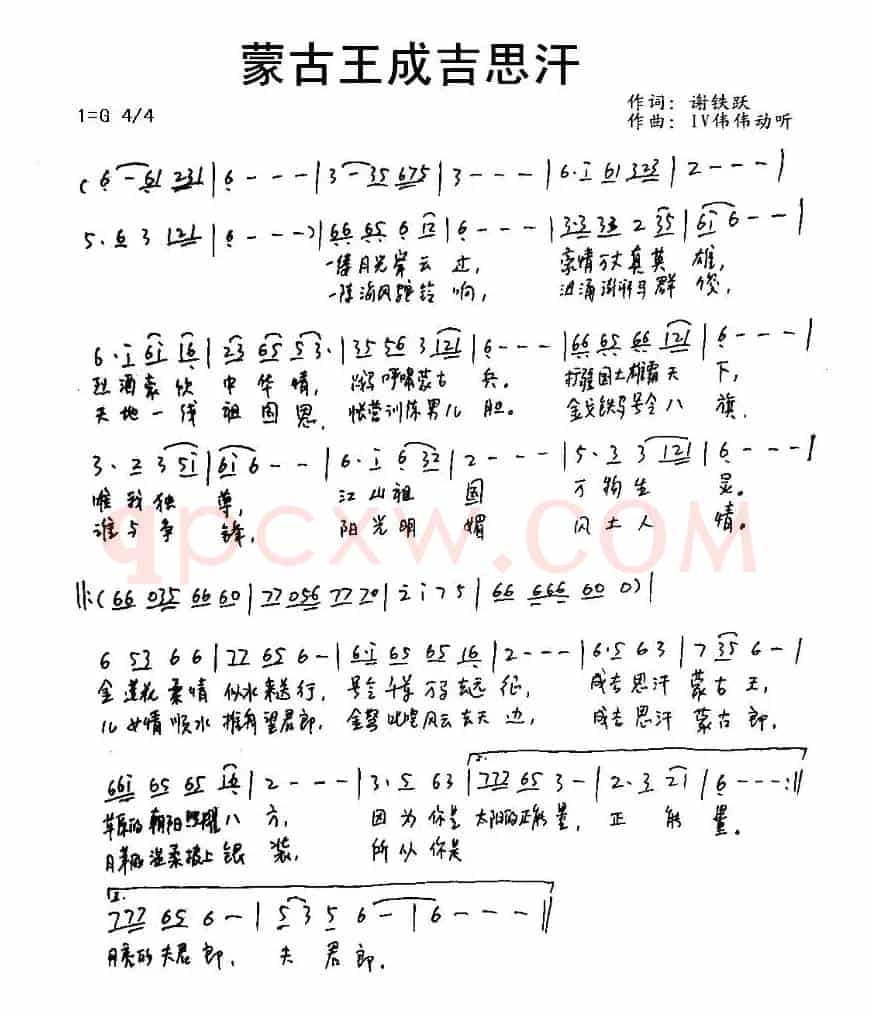 蒙古王成吉思汗
1=G 4/4
作词：谢铁跃
作曲：IV伟伟动听
(6 - 61 231 | 6 - - - | 3 - 35 675 | 3 - - - | 6·i 61 323 | 2 - - - |
5·6 3 121 | 6 - - -) | 66 65 6 12 | 6 - - - | 3·3 33 2 35 | 6i 6 - - |
月光 云 过， 豪情万丈真英 雄，
一阵海风 铃 响， 汹涌澎湃马 群
6·i 6i 16 | 23 65 53· | 35 56 3 121 | 6 - - - | 66 65 66 121 | 6 - - - |
烈酒豪饮 中 华 情， 呼啸蒙古 兵。 打疆国土雄霸天 下，
天地一线 祖国恩， 帐营训练男儿 胆。 金戈铁马号令八 旗，
3·2 3 5i | 6i 6 - - | 6·i 6 32 | 2 - - - | 5·3 3 121 | 6 - - - |
唯我独 尊， 江山祖 国 万物生 灵。
谁与争 锋， 阳光明 媚 风土人 情。
qpcxw.com
||:(66 035 66 60 | 77 056 77 70 | 2 i 7 5 | 66 666 60 0) |
6 53 6 6 | 77 65 6 - | 6·i 65 65 16 | 2 - - - | 6·5 63 | 7 35 6 - |
金莲花柔情 似水来送行， 号令千军万马去远 征， 成吉思汗 蒙古 王，
儿女情顺水 推舟望君郎， 金弩 风云去天 边， 成吉思汗 蒙古 郎，
66i 65 65 16 | 2 - - - | 3·5 63 | 777 65 3 - | 2·3 2i | 6 - - - :||
草原的朝阳照耀八 方， 因为你是 太阳的正能量， 正 能 量。
温柔披上银 装， 所以你是
2.
777 65 6 - | 5 3 5 6 - | 6 - - - ||
月亮的夫君 郎， 夫 君 郎。